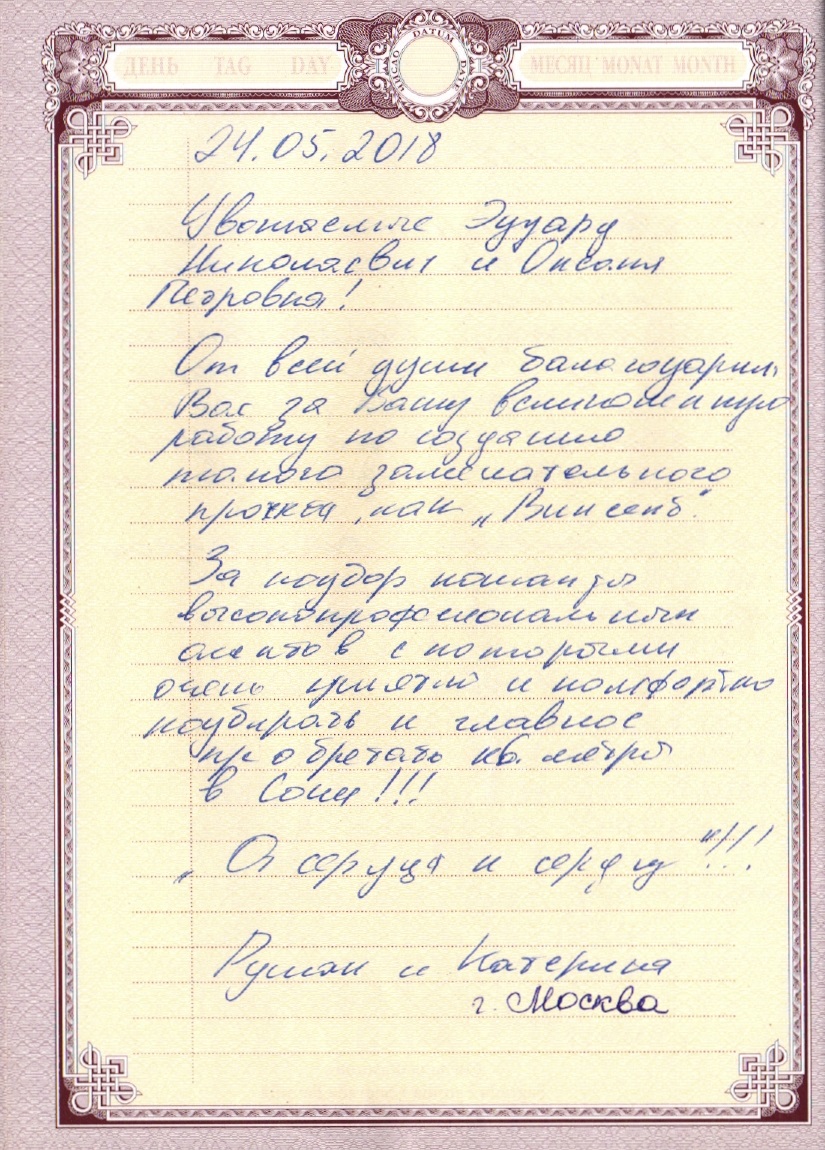 ДЕНЬ TAG DAY
ЧИСЛО DATUM DATE
МЕСЯЦ MONAT MONTH
24.05.2018
Уважаемые Эдуард
Николаевич и Оксана
Петровна!
От всей души балагодарим
Вас за Вашу великолепную
работу по созданию
такого замечательного
проекта, как „Винсент".
За подбор команды
высокопрофессиональных
агентов с которыми
очень приятно и комфортно
подбирать и главное
приобретать кв. метры
в Сочи!!!
„От сердца к сердцу"!!!
и Катерина
г. Москва